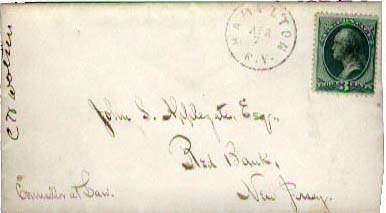 HAMILTON
N.Y.
John S. Applegate, Esq.,
Red Bank,
New Jersey.
Counsellor at Law.
3